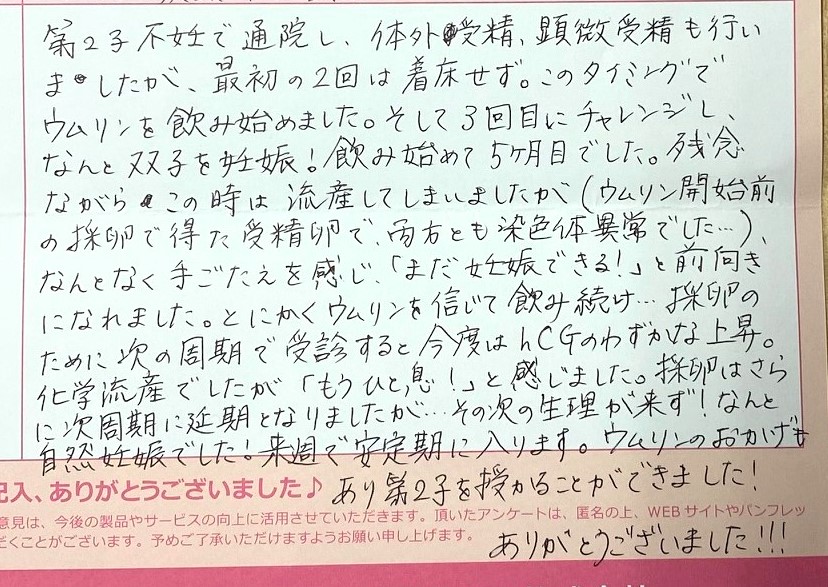 第2子不妊で通院し、体外受精、顕微受精も行い
ましたが、最初の2回は着床せず。このタイミングで
ウムリンを飲み始めました。そして3回目にチャレンジし、
なんと双子を妊娠！飲み始めて5ヶ月目でした。残念
ながらこの時は流産してしまいましたが(ウムリン開始前
の採卵で得た受精卵で、両方とも染色体異常でした…)、
なんとなく手ごたえを感じ、「まだ妊娠できる！」と前向き
になれました。とにかくウムリンを信じて飲み続け…採卵の
ために次の周期で受診すると今度はhCGのわずかな上昇。
化学流産でしたが「もうひと息！」と感じました。採卵はさら
に次周期に延期となりましたが…その次の生理が来ず！なんと
自然妊娠でした！来週で安定期に入ります。ウムリンのおかげも
記入、ありがとうございました♪ あり第2子を授かることができました！
意見は、今後の製品やサービスの向上に活用させていただきます。頂いたアンケートは、匿名の上、WEBサイトやパンフレッ
だくことがございます。予めご了承いただけますようお願い申し上げます。
ありがとうございました!!!